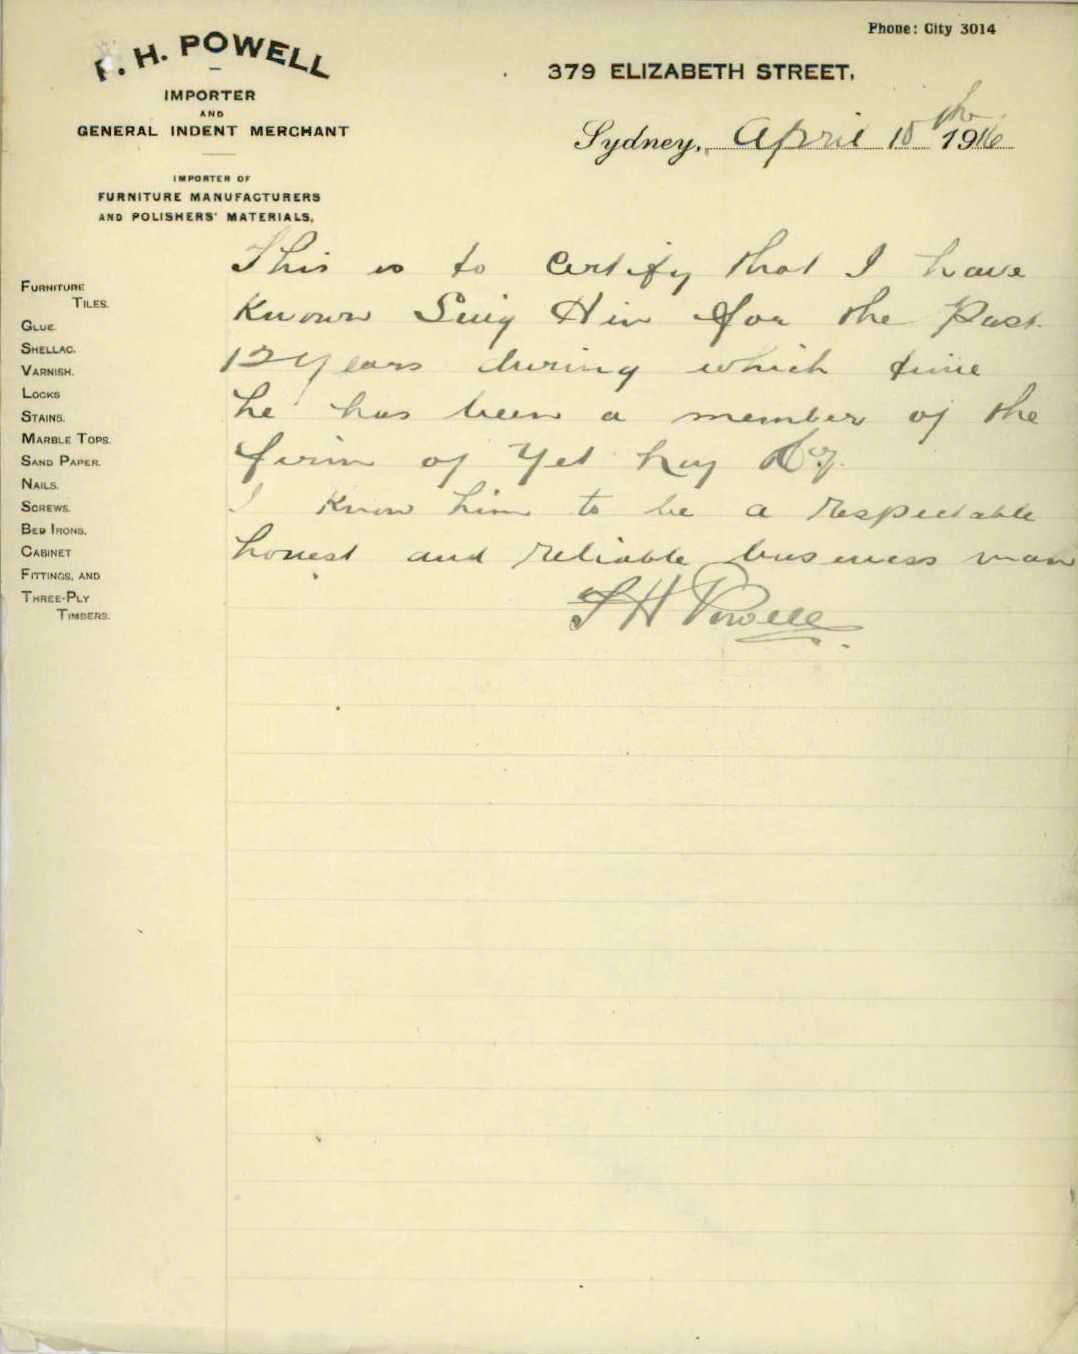 Phone: City 3014
F. H. POWELL
IMPORTER
AND
GENERAL INDENT MERCHANT
IMPORTER OF
FURNITURE MANUFACTURERS
AND POLISHERS' MATERIALS.
379 ELIZABETH STREET,
Sydney, April 10th 1916
FURNITURE
TILES.
GLUE.
SHELLAC.
VARNISH.
LOCKS
STAINS.
MARBLE TOPS.
SAND PAPER.
NAILS.
SCREWS.
BED IRONS.
CABINET
FITTINGS, AND
THREE-PLY
TIMBERS.
This is to certify that I have
Known Sing Hin for the Past
12 Years during which time
he has been a member of the
firm of Yet Huy
I Know him to be a respectable
honest and reliable business man
F H Powell